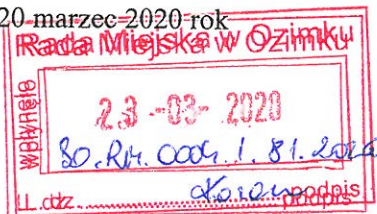 20 marzec 2020 rok
Rada Miejska w Ozimku
wpłynęło
23 -03- 2020
BO.RM. 0004.1.81.2020
L.dz. ........................ podpis